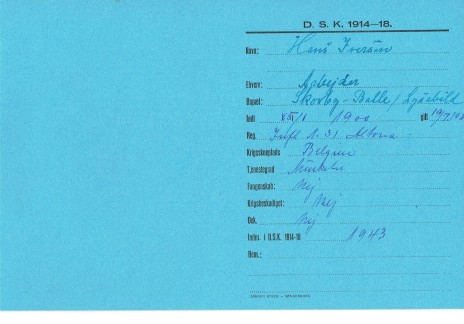 D. S. K. 1914—18.
Navn: Hans Iversen
Erhverv: Arbejder
Bopæl: Skovby-Balle / Lysabild
født 1900 gift
Reg. Inft. N. 31 Altona -
Krigsskueplads Belgien
Tjenestegrad Musketer
Fangenskab: Nej
Krigsbeskadiget: Nej
Dek. Nej
Indm. i D.S.K. 1914-18 1943
Bem.: